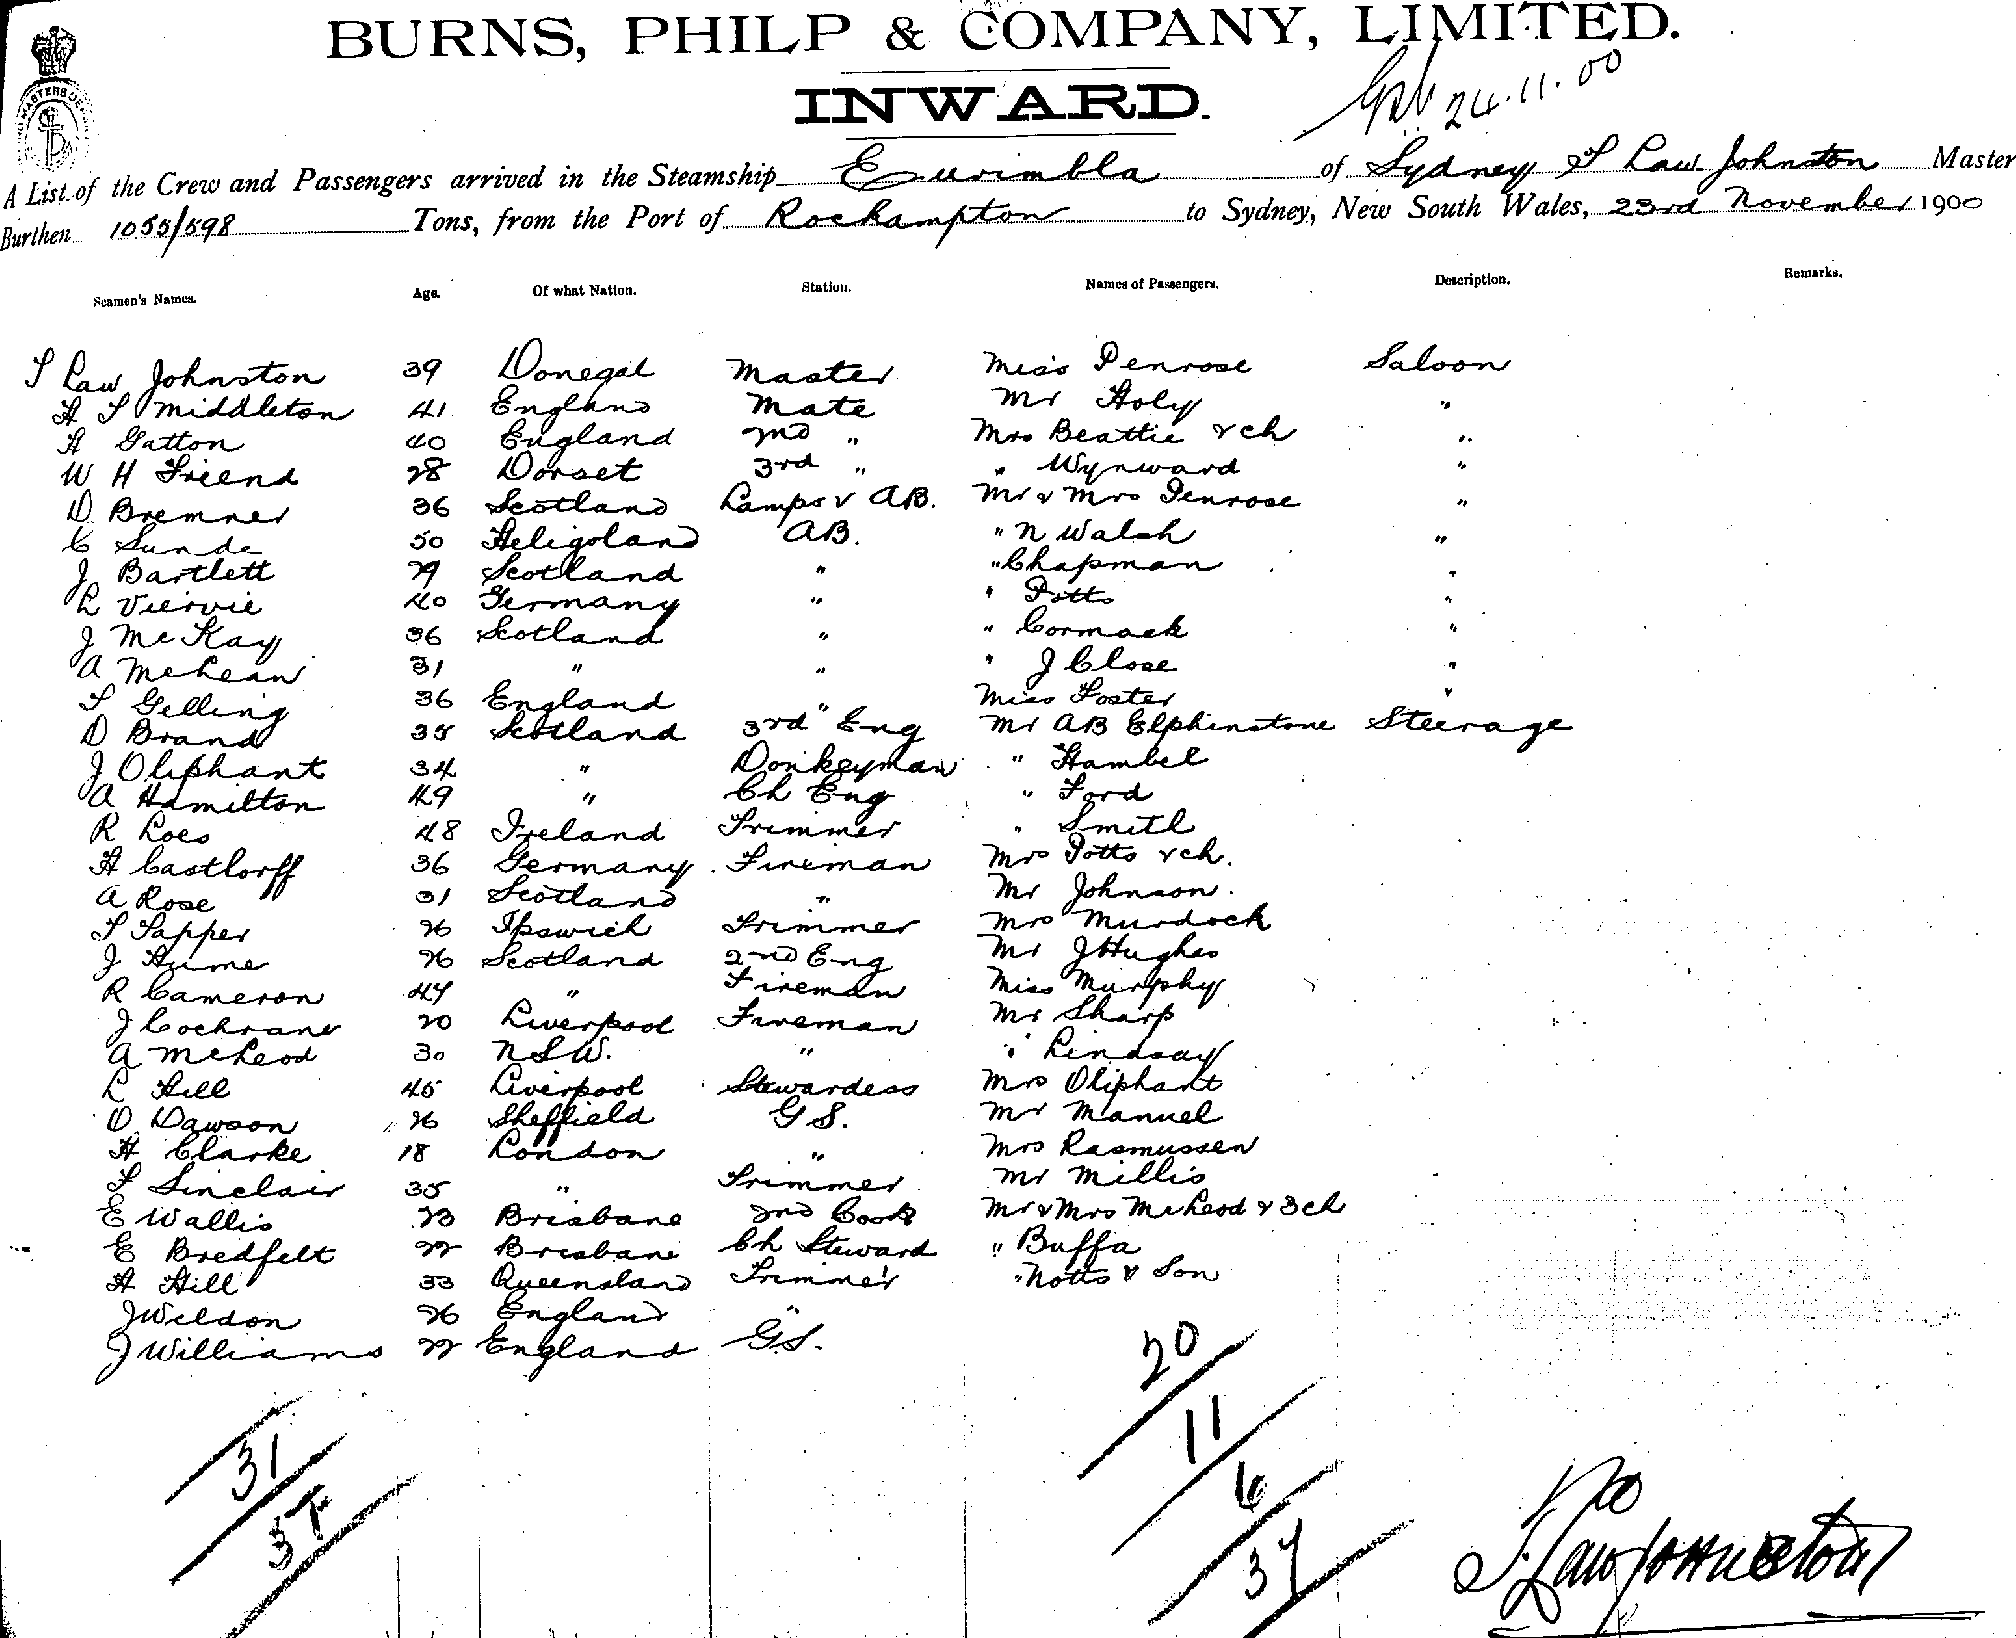 BURNS, PHILP & COMPANY, LIMITED.
INWARD.
24.11.00
A List of the Crew and Passengers arrived in the Steamship Eurimbla of Sydney T Law Johnston Master
Burthen 1055/598 Tons, from the Port of Rockhampton to Sydney, New South Wales, 23rd November 1900
Seamen's Names. Age. Of what Nation. Station. Names of Passengers. Description. Remarks.
T Law Johnston 39 Donegal Master Miss Penrose Saloon
H T Middleton 41 England Mate Mr Holy "
H Gatton 40 England 2nd " Mrs Beattie & ch "
W H Friend 28 Dorset 3rd " " Wynward "
D Bremner 36 Scotland Lamps & AB. Mr & Mrs Penrose "
C Sunde 50 Heligoland AB. " N Walsh "
J Bartlett 29 Scotland " " Chapman "
L Viervie 40 Germany " " Potts "
J McKay 36 Scotland " " Cormack "
A McLean 31 " " " J Close "
T Gelling 36 England " Miss Foster "
D Brand 35 Scotland 3rd Eng Mr AB Elphinstone Steerage
J Oliphant 34 " Donkeyman " Hambel
A Hamilton 49 " Ch Eng " Ford
R Loes 48 Ireland Trimmer " Smith
H Castlorff 36 Germany Fireman Mrs Potts & ch.
A Rose 31 Scotland " Mr Johnson.
T Tapper 26 Ipswich Trimmer Mrs Murdock
J Hume 26 Scotland 2nd Eng Mr J Hughes
R Cameron 47 " Fireman Miss Murphy
J Cochrane 20 Liverpool Fireman Mr Sharp
A McLeod 30 NSW. " " Lindsay
L Hill 45 Liverpool Stewardess Mrs Oliphant
O Dawson 26 Sheffield G S. Mr Manuel
H Clarke 18 London " Mrs Rasmussen
T Sinclair 35 " Trimmer Mr Millis
E Wallis 23 Brisbane 2nd Cook Mr & Mrs McLeod & 3 ch
E Bredfelt 22 Brisbane Ch Steward " Buffa
H Hill 33 Queensland Trimmer " Notts & Son
J Weldon 26 England "
J Williams 22 England G.S.
20
11
31
6
37
37
T. Law Johnston